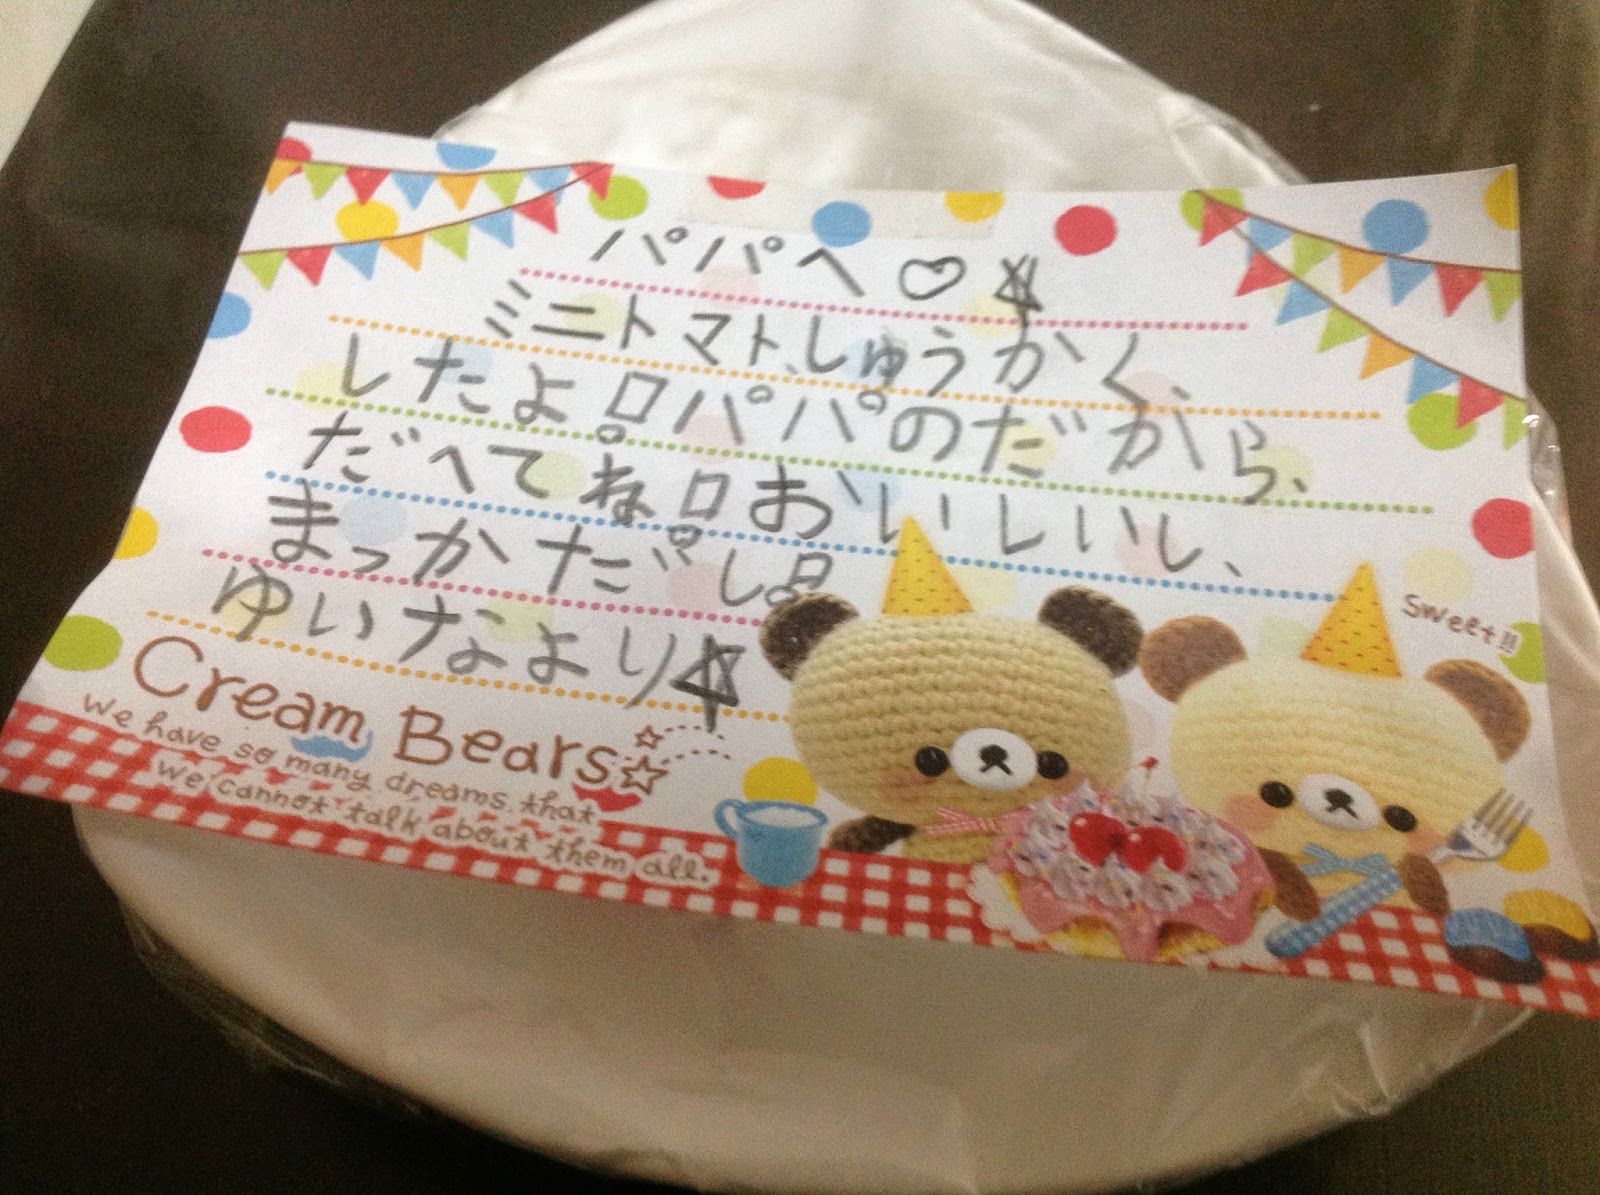 パパへ♡☆
ミニトマト、しゅうかく、
したよ!パパのだから、
だべてね!おいしいし、
まっかだし!
ゆいなより☆
Sweet!!
Cream Bears
We have so many dreams that
we cannot talk about them all.